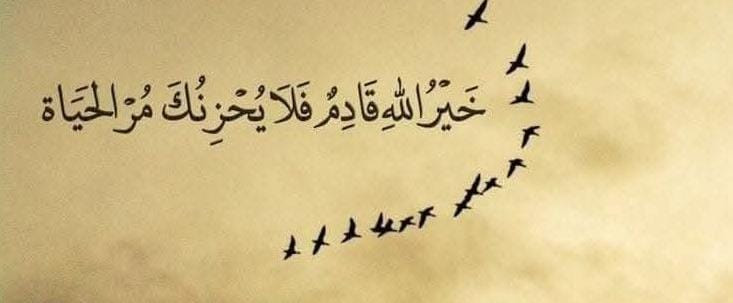 خَيْرُ اللهِ قَادِمٌ فَلَا يُحْزِنُكَ مُرْ الْحَيَاة